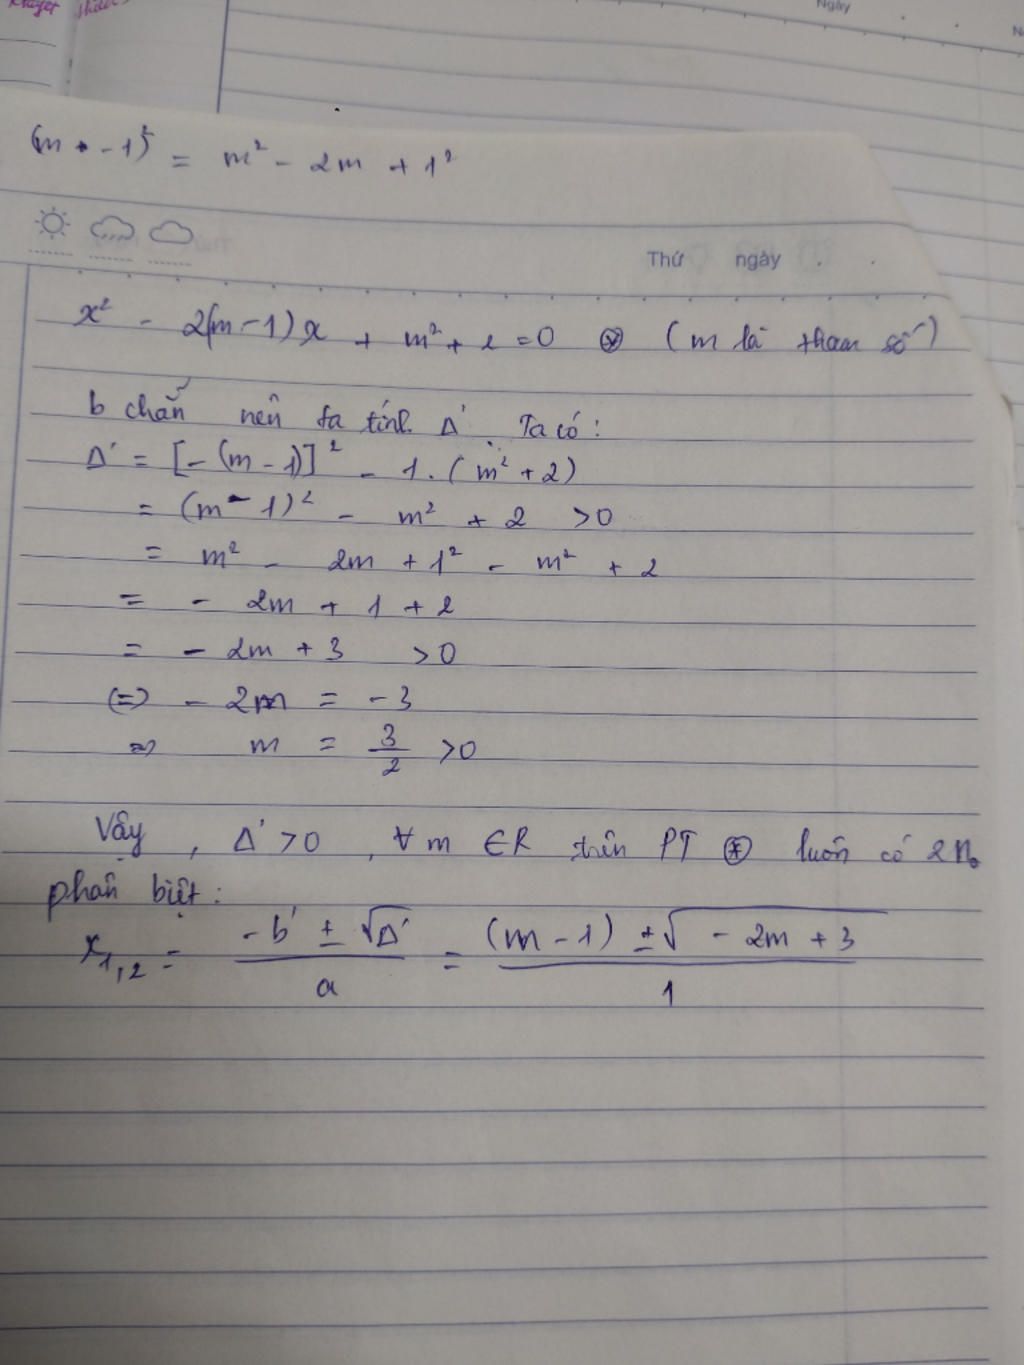 Ngày
(m - 1)² = m² - 2m + 1²
Thứ ngày
x² - 2(m-1)x + m² + 2 = 0 ⊛ (m là tham số)
b chẵn nên ta tính Δ'. Ta có:
Δ' = [-(m-1)]² - 1.(m² + 2)
= (m - 1)² - m² + 2 >0
= m² - 2m + 1² - m² + 2
= - 2m + 1 + 2
= - 2m + 3 >0
(=) - 2m = -3
=> m = 3/2 >0
Vậy, Δ' >0, ∀m ∈R trên PT ⊛ luôn có 2 no
phân biệt:
x₁,₂ = (-b' ± √Δ')/a = ((m - 1) ± √(-2m + 3))/1